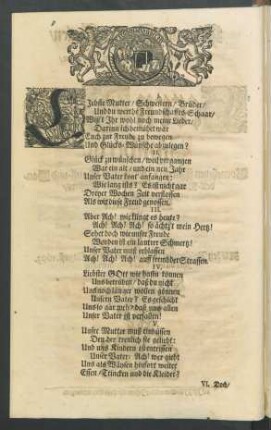 Jebste Mutter / Schwestern / Brüder /
Und du werthe Freundschaffts-Schaar /
Wißt Ihr wohl noch meine Lieder /
Darinn ich bemühet war
Euch zur Freude zu bewegen
Und Glücks-Wünsche abzulegen?
II.
Glück zu wünschen / weil vergangen
War ein alt / und ein neu Jahr
Unser Vater angefangen:
Wie lang ists? Es ist nicht gar
Dreyer Wochen Zeit verflossen
Als wir diese Freud genossen.
III.
Aber Ach! wie klingt es heute?
Ach! Ach! Ach! so ächtzt mein Hertz!
Sehet doch wie unsre Freude
Worden ist ein lauter Schmertz!
Unser Vater muß erblassen
Ach! Ach! Ach! auff frembder Strassen
IV.
Liebster GOtt wie hastu können
Uns betrüben / daß du nicht
Uns noch länger wollen gönnen
Unsern Vater? Es geschicht
Uns so gar weh / daß uns allen
Unser Vater ist verfallen!
V.
Unsre Mutter muß einbüssen
Den der treulich sie geliebt:
Und uns Kindern ist entrissen
Unser Vater: Ach! wer giebt
Uns als Wäisen hinfort weiter
Essen / Trincken und die Kleider?
VI. Doch /